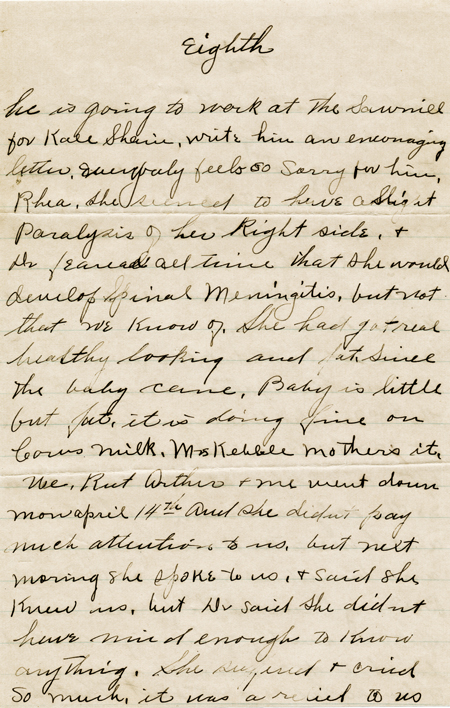 Eighth
he is going to work at the Sawmill
for Kale, write him an encouraging
letter, everybody feels so sorry for him,
Rhea, she seemed to have a slight
Paralysis of her Right side, &
Dr feared all time that she would
develop Spinal Meningitis, but not
that we know of, She had got real
healthy looking and fat since
the baby came, Baby is little
but fat, it is doing fine on
Cows milk, Mrs Kebble mothers it,
Arthur & me went down
mon april 14th And she didnt pay
much attention to us, but next
moring she spoke to us, & said she
Knew us, but Dr said she didnt
have mind enough to know
anything. She & cried
So much, it was a relief to us